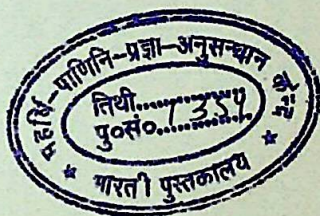 महर्षि-पाणिनि-प्रज्ञा-अनुसन्धान केन्द्र
तिथी..................
पु०सं०.1354
* भारती पुस्तकालय *